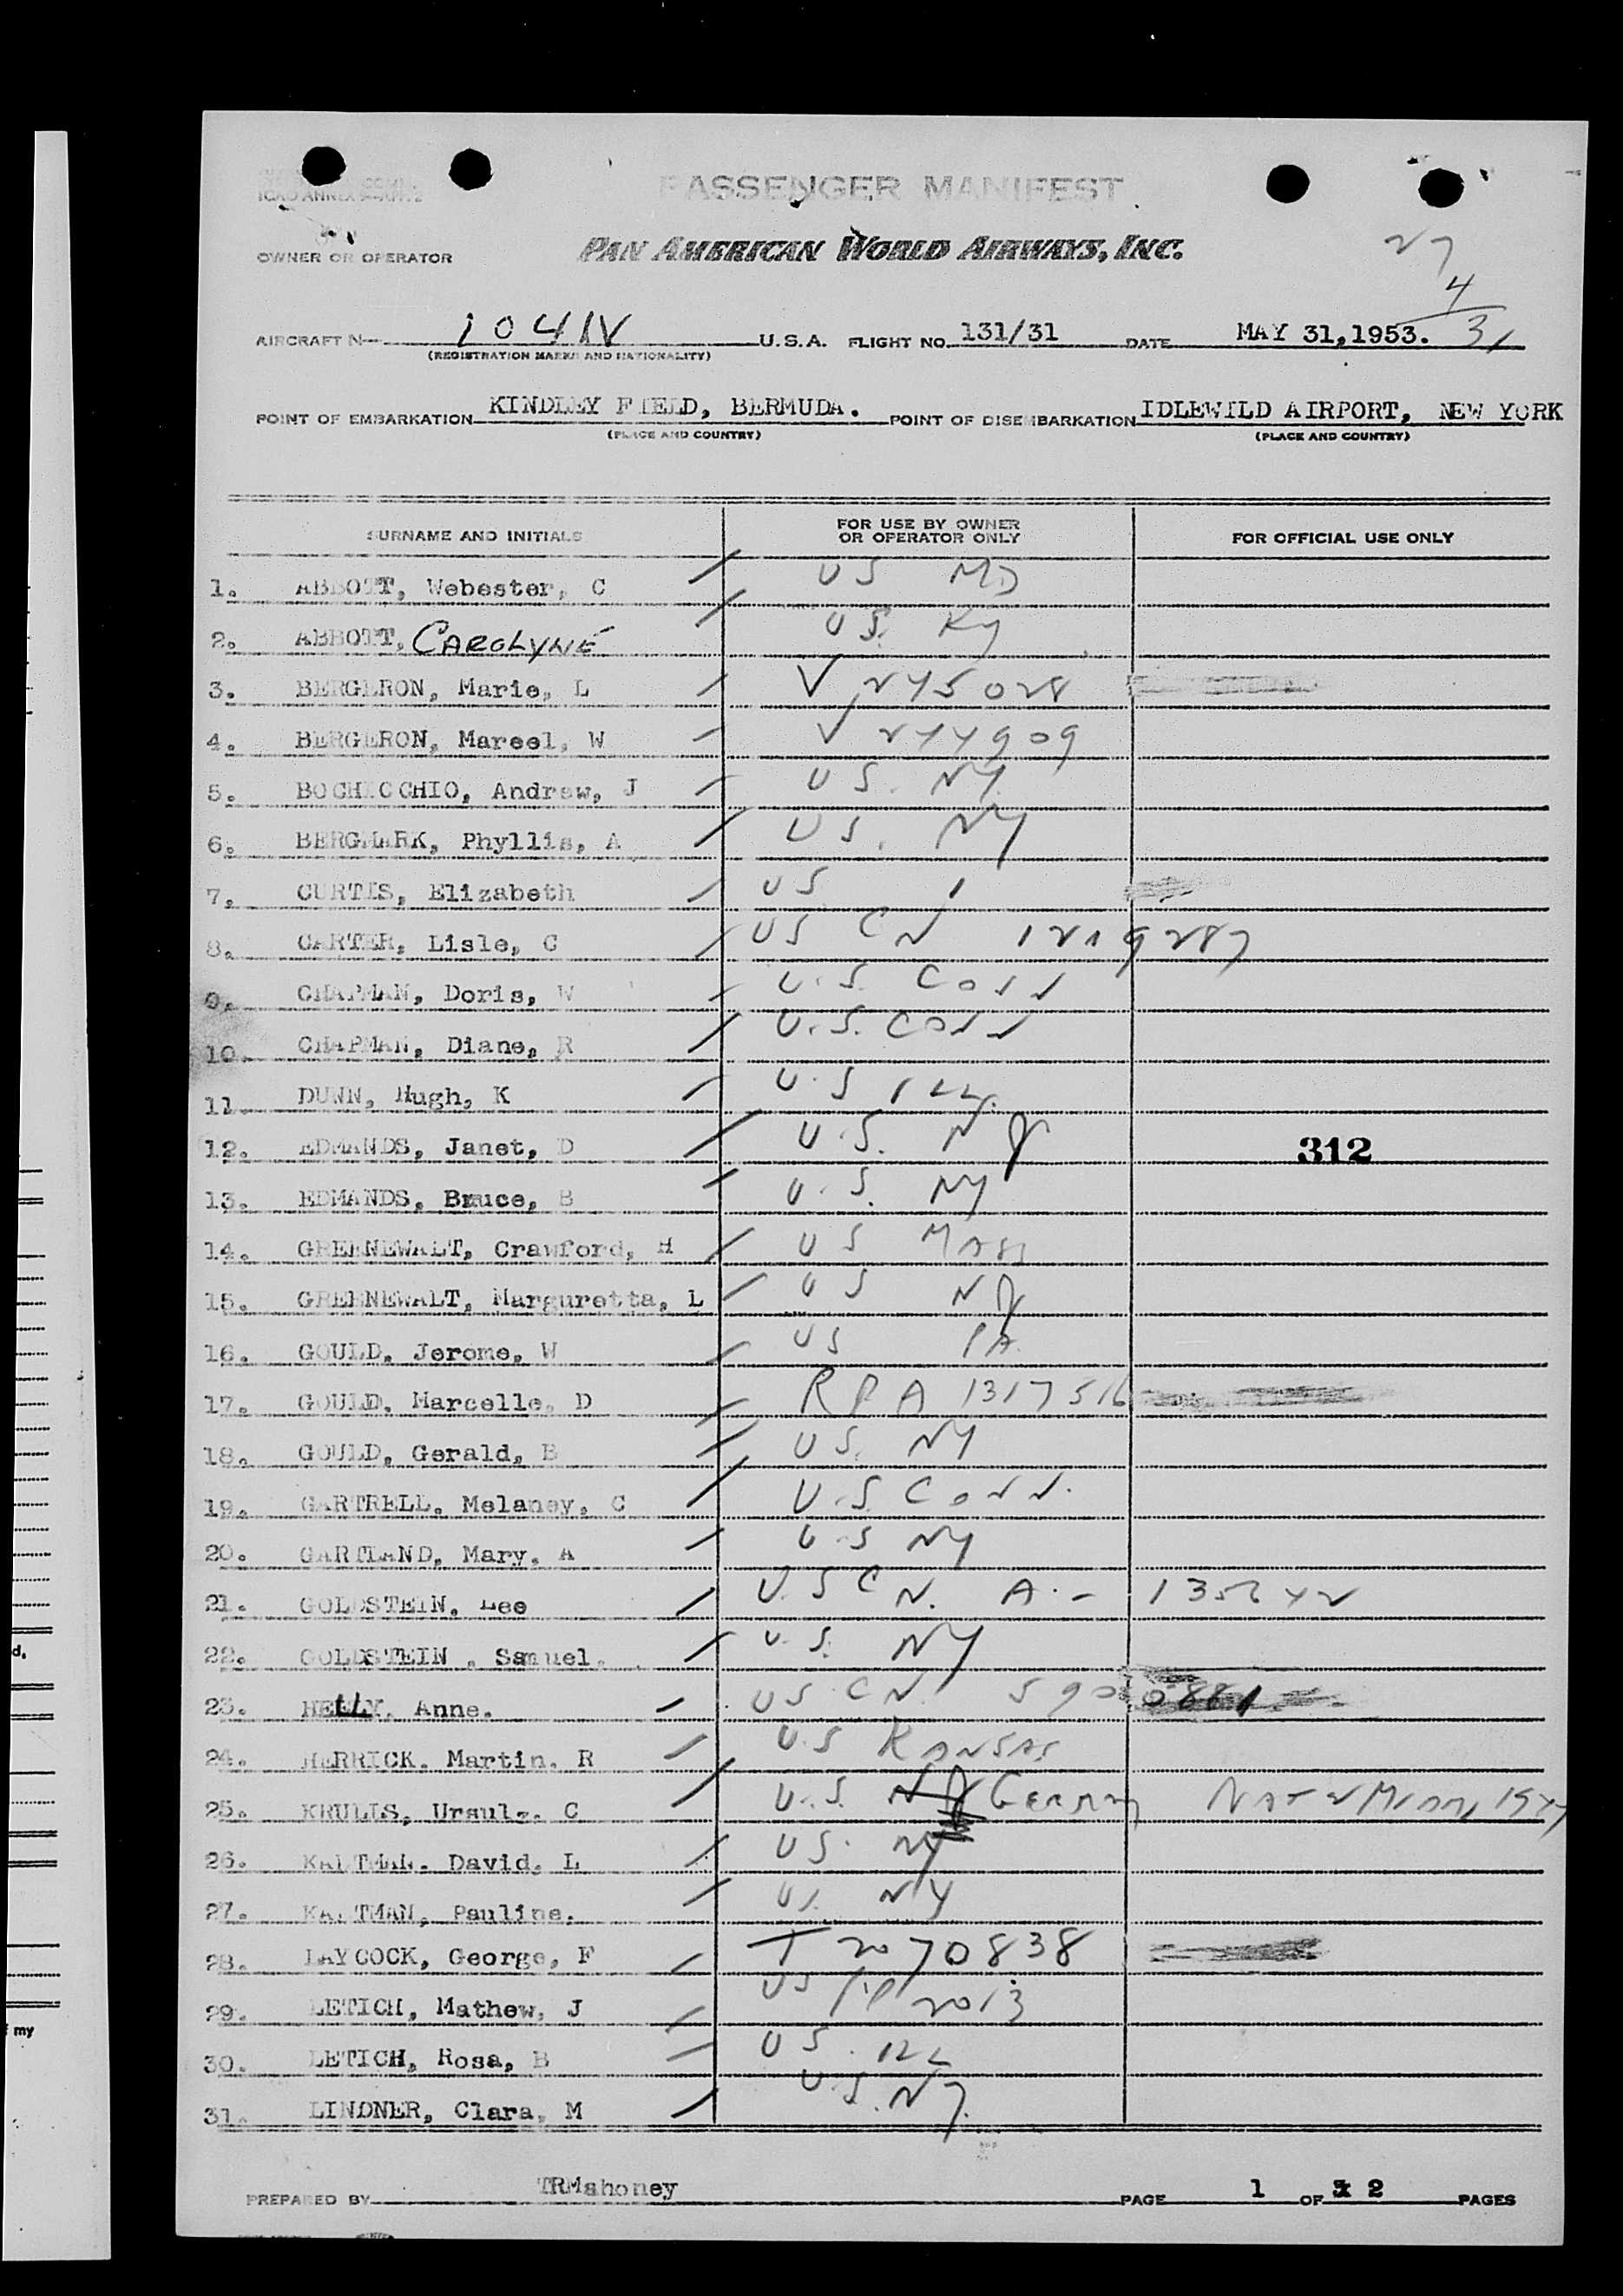 ICAO ANNEX
PASSENGER MANIFEST
OWNER OR OPERATOR PAN AMERICAN WORLD AIRWAYS, INC.
27
4
31
AIRCRAFT N— 1041V U.S.A. FLIGHT NO. 131/31 DATE MAY 31,1953.
(REGISTRATION MARKS AND NATIONALITY)
POINT OF EMBARKATION KINDLEY FIELD, BERMUDA. POINT OF DISEMBARKATION IDLEWILD AIRPORT, NEW YORK
(PLACE AND COUNTRY) (PLACE AND COUNTRY)
SURNAME AND INITIALS FOR USE BY OWNER OR OPERATOR ONLY FOR OFFICIAL USE ONLY
1. ABBOTT, Webester, C US MD
2. ABBOTT, CAROLYNE US. Ky
3. BERGERON, Marie, L V 245028
4. BERGERON, Marcel, W V 244909
5. BOCHICCHIO, Andrew, J US. NY.
6. BERGMARK, Phyllis, A US. NY
7. CURTIS, Elizabeth US 1
8. CARTER, Lisle, C US CN 1219287
9. CHAPMAN, Doris, W U.S. Conn
10. CHAPMAN, Diane, R U.S. Conn
11. DUNN, Hugh, K U.S ILL.
12. EDMANDS, Janet, D U.S. NJ
312
13. EDMANDS, Bruce, B U.S. NY
14. GREENEWALT, Crawford, H US MASS
15. GREENEWALT, Marguretta, L US NJ
16. GOULD, Jerome, W US PA.
17. GOULD, Marcelle, D RPA 1317516
18. GOULD, Gerald, B US. NY
19. GARTRELL, Melaney, C U.S. Conn.
20. GARTLAND, Mary, A U.S NY
21. GOLDSTEIN, Lee U.S CN. A.-
22. GOLDSTEIN, Samuel. U.S. NY
23. HELLY, Anne. US CN 5900881
24. HERRICK. Martin. R U.S KANSAS
25. KRULIS, Ursula. C U.S. NJ Germany
26. David, L US. NY
27. Pauline. US. NY
28. LAYCOCK, George, F T 2070838
29. LETICH, Mathew, J US 2013
30. LETICH, Rosa, B US. ILL
31. LINDNER, Clara, M U.S. NJ.
PREPARED BY TRMahoney PAGE 1 OF 2 PAGES
d.
my